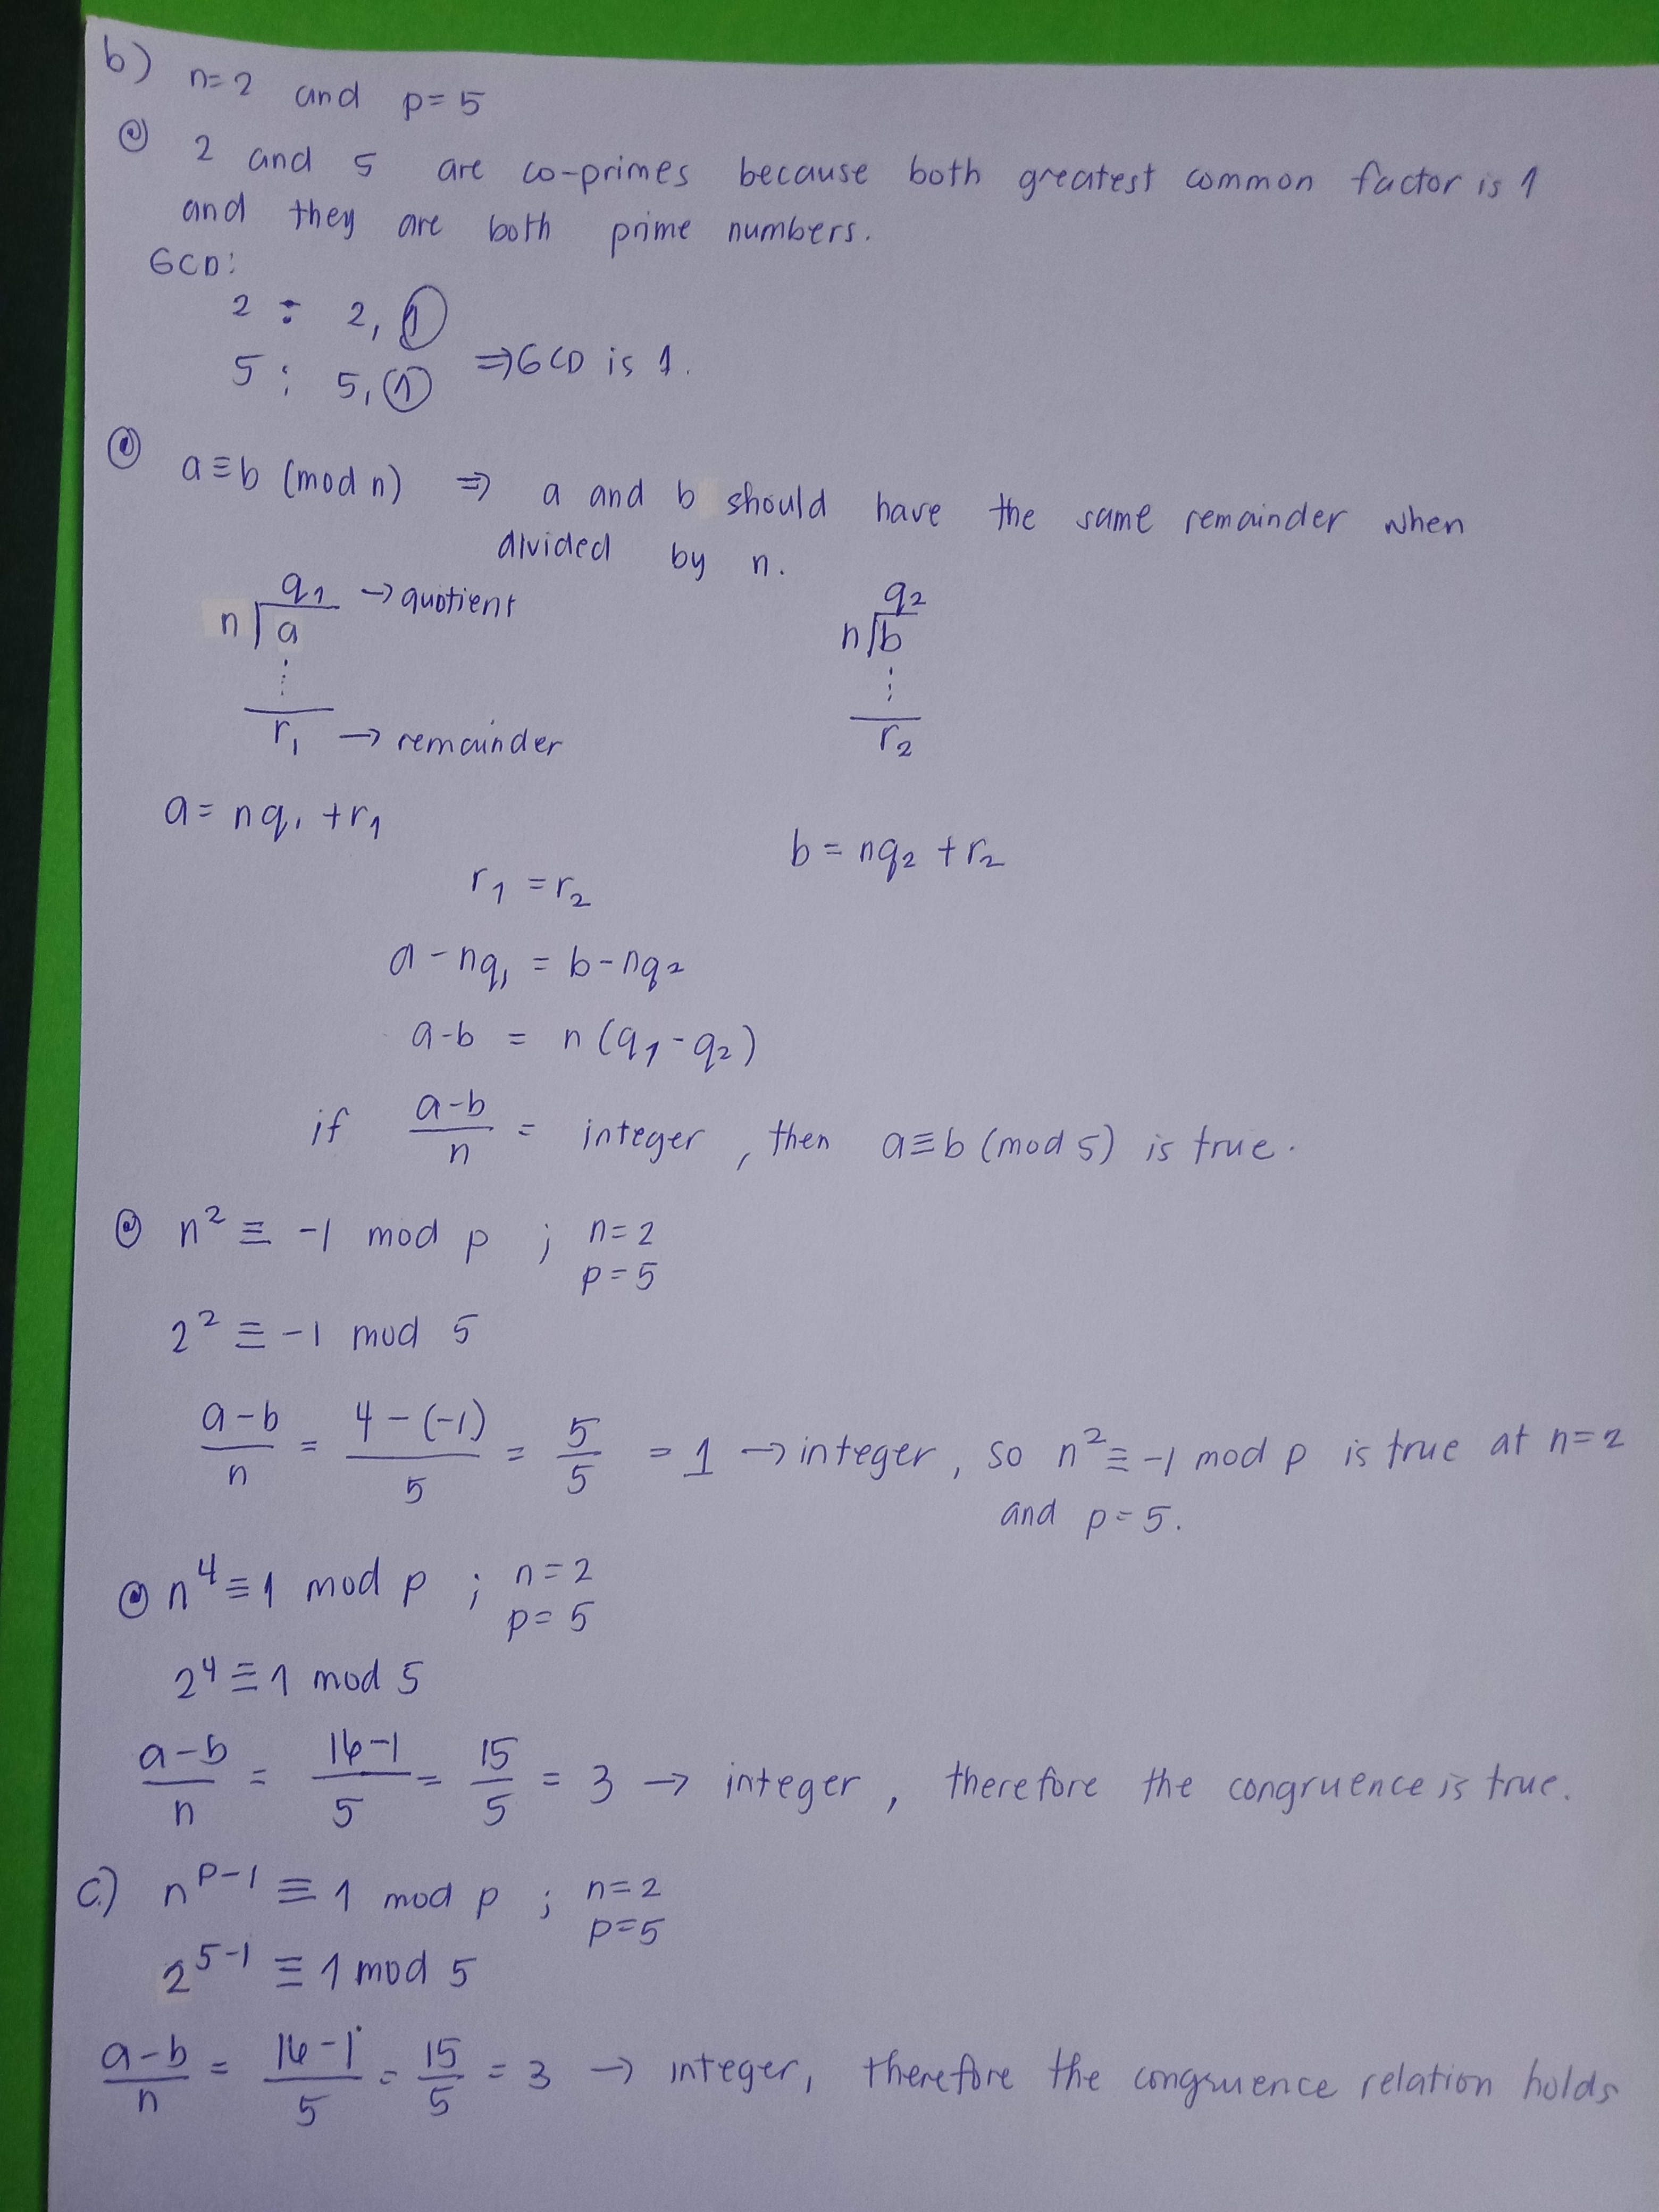 b) n=2 and p=5
2 and 5 are co-primes because both greatest common factor is 1
and they are both prime numbers.
GCD:
2 : 2, 1
5 : 5, 1 ⇒ GCD is 1.
a≡b (mod n) ⇒ a and b should have the same remainder when
divided by n.
q₁ → quotient q₂
n a n b
⋮ ⋮
r₁ → remainder r₂
a = nq₁ + r₁
b = nq₂ + r₂
r₁ = r₂
a - nq₁ = b - nq₂
a-b = n(q₁ - q₂)
if (a-b)/n = integer, then a≡b (mod 5) is true.
n² ≡ -1 mod p ; n=2
p=5
2² ≡ -1 mod 5
(a-b)/n = (4-(-1))/5 = 5/5 = 1 → integer, so n² ≡ -1 mod p is true at n=2
and p=5.
n⁴ ≡ 1 mod p ; n=2
p=5
2⁴ ≡ 1 mod 5
(a-b)/n = (16-1)/5 = 15/5 = 3 → integer, therefore the congruence is true.
c.) n^(p-1) ≡ 1 mod p ; n=2
p=5
2^(5-1) ≡ 1 mod 5
(a-b)/n = (16-1)/5 = 15/5 = 3 → integer, therefore the congruence relation holds